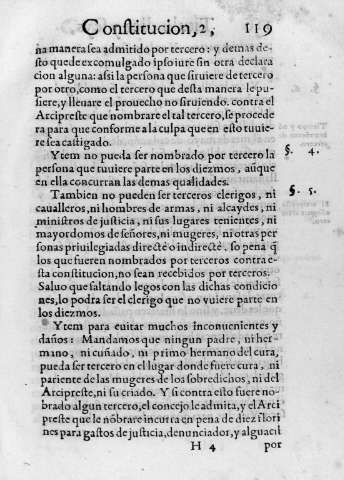 Constitucion, 2, 119
na manera sea admitido por tercero: y demas de-
sto quede excomulgado ipso iure sin otra declara
cion alguna: assi la persona que siruiere de tercero
por otro, como el tercero que desta manera le pu-
siere, y lleuare el prouecho no siruiendo. contra el
Arcipreste que nombrare el tal tercero, se procede
ra para que conforme a la culpa que en esto tuuie-
re sea castigado.
Ytem no pueda ser nombrado por tercero la §. 4.
persona que tuuiere parte en los diezmos, aũque
en ella concurran las demas qualidades.
Tambien no pueden ser terceros clerigos, ni §. 5.
caualleros, ni hombres de armas, ni alcaydes, ni
ministros de justicia, ni sus lugares tenientes, ni
mayordomos de señores, ni mugeres, ni otras per
sonas priuilegiadas directè o indirectè, so pena q̃
los que fueren nombrados por terceros contra e-
sta constitucion, no sean recebidos por terceros.
Saluo que faltando legos con las dichas condicio
nes, lo podra ser el clerigo que no vuiere parte en
los diezmos.
Ytem para euitar muchos inconuenientes y
daños: Mandamos que ningun padre, ni her-
mano, ni cuñado, ni primo hermano del cura,
pueda ser tercero en el lugar donde fuere cura, ni
pariente de las mugeres de los sobredichos, ni del
Arcipreste, ni su criado. Y si contra esto fuere no-
brado algun tercero, el concejo le admita, y el Arci
preste que le nõbrare incurra en pena de diez flori
nes para gastos de justicia, denunciador, y alguacil
H 4 por